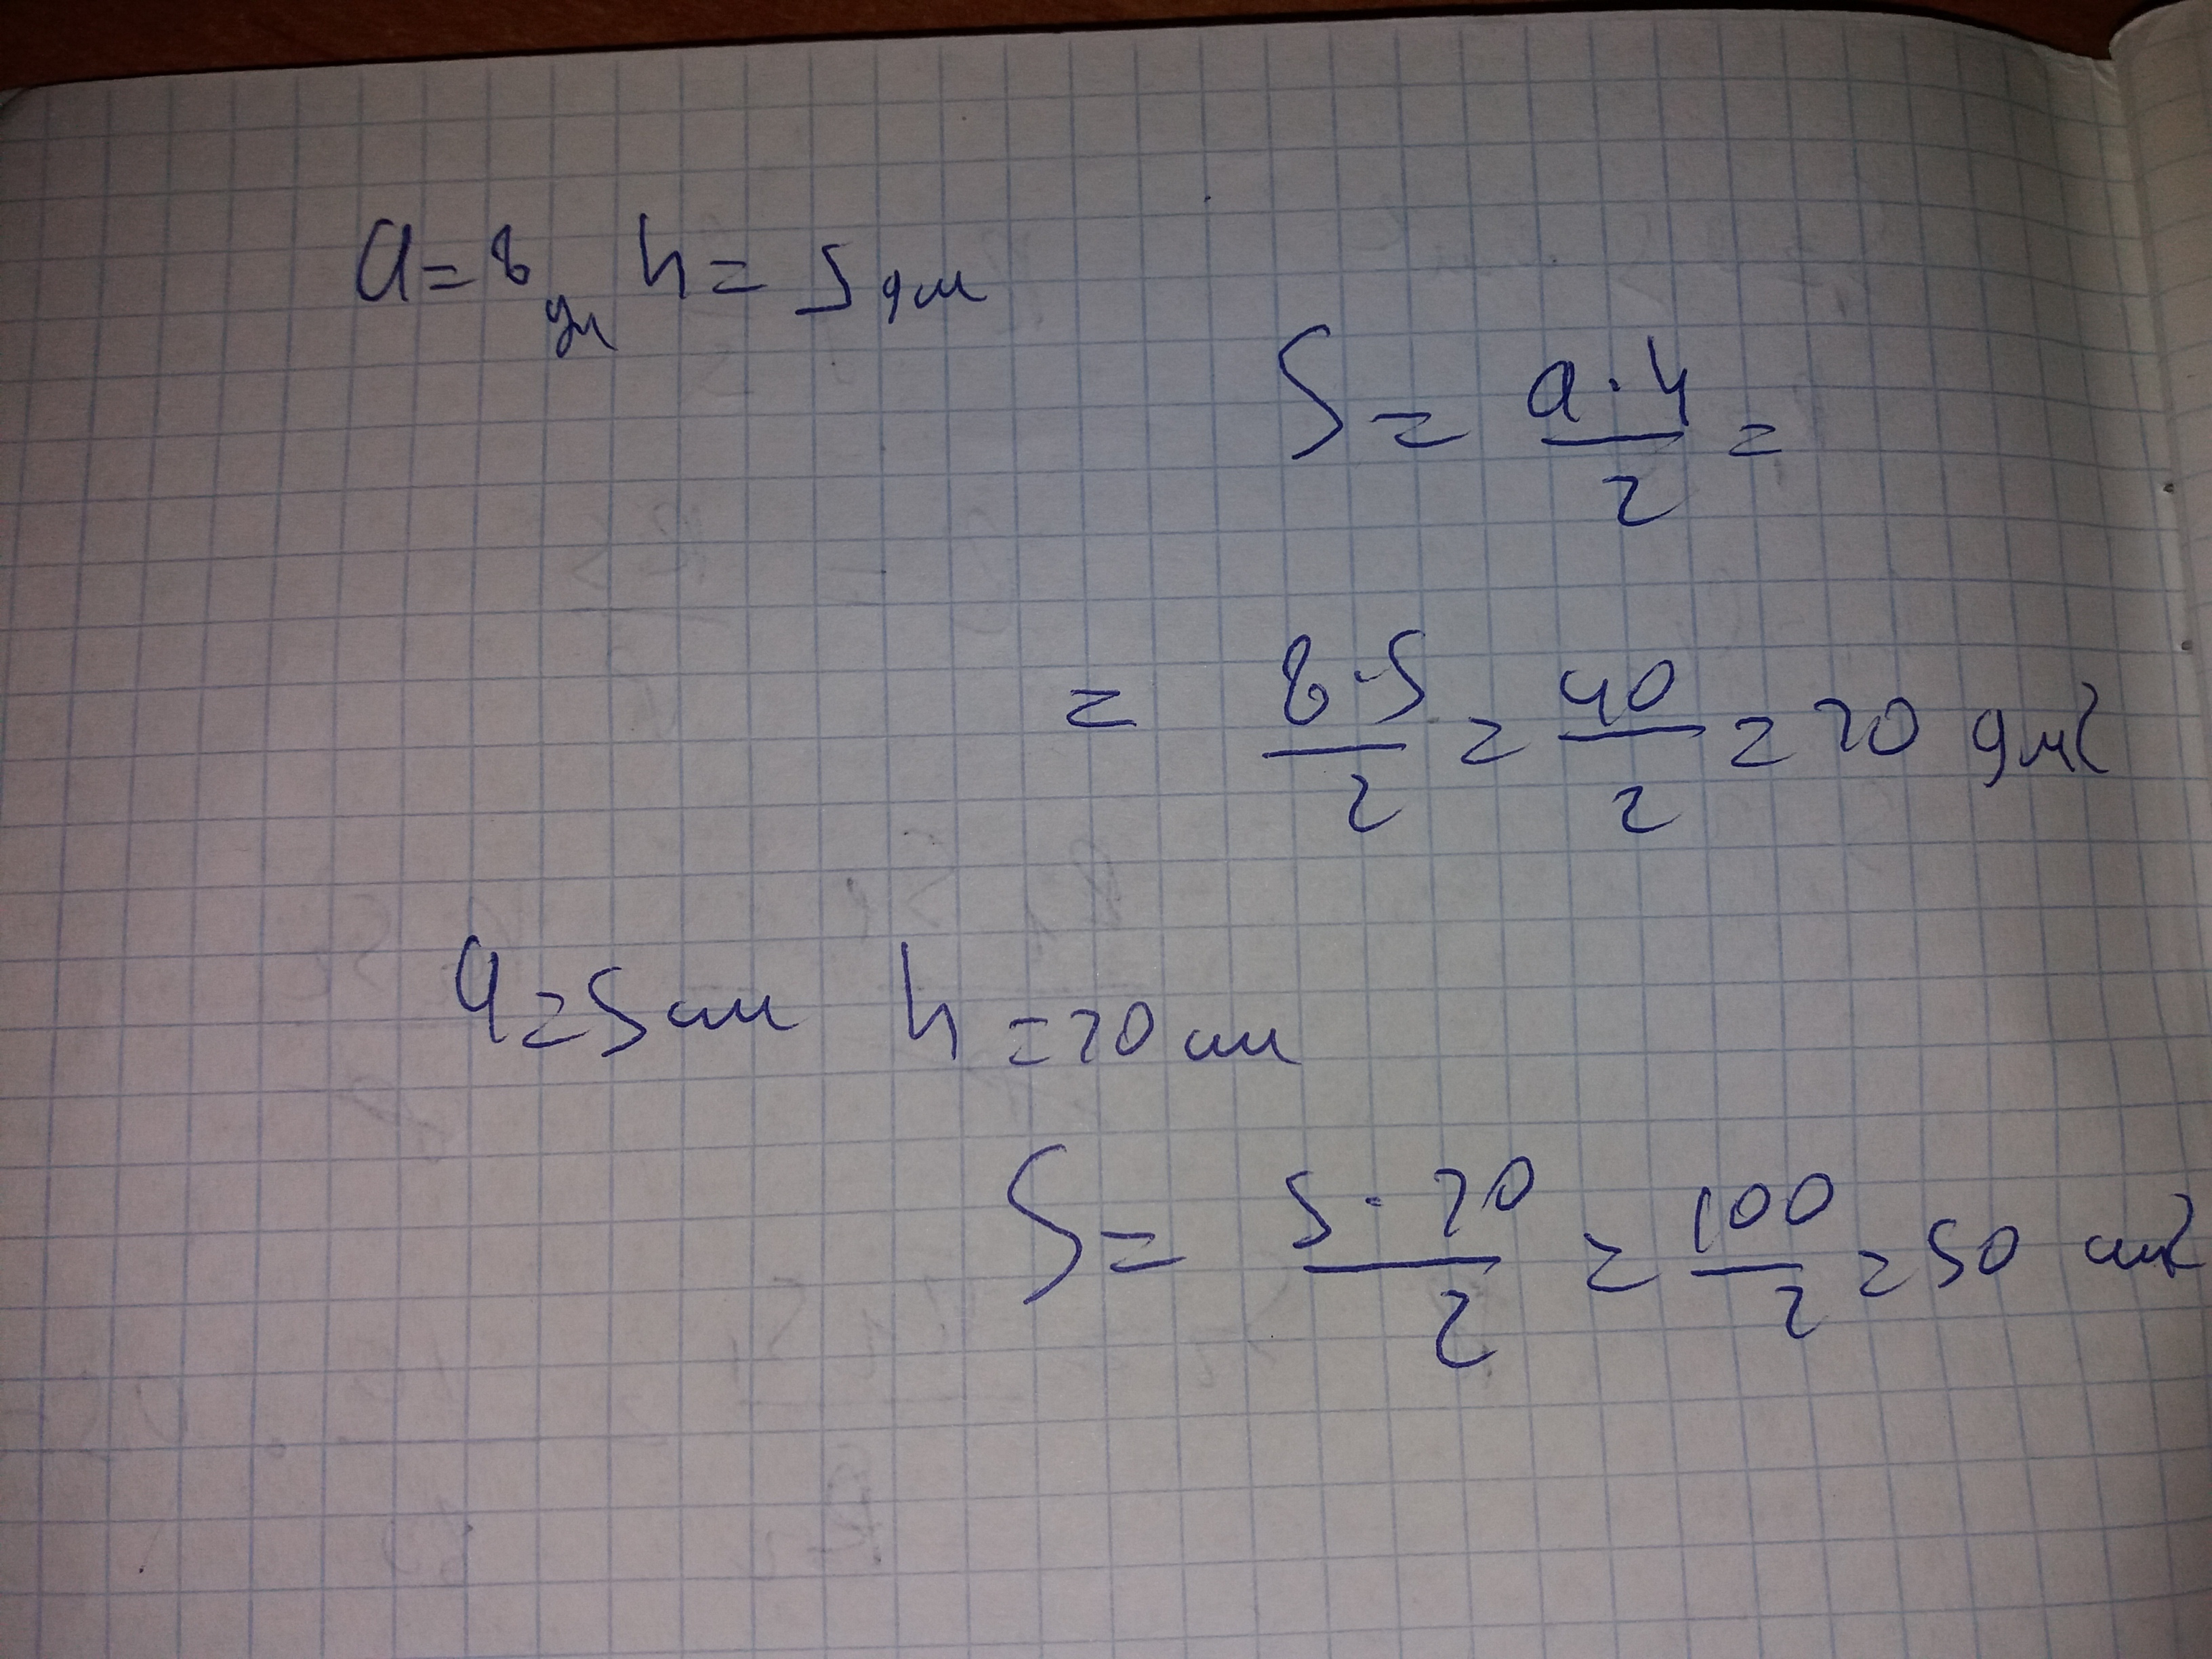 a = 8 дм h = 5 дм
S = a · h / 2 =
= 8 · 5 / 2 = 40 / 2 = 20 дм²
a = 5 см h = 20 см
S = 5 · 20 / 2 = 100 / 2 = 50 см²